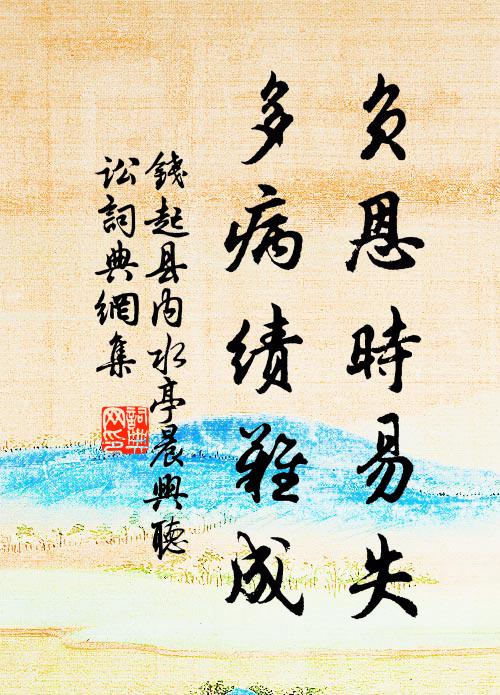 负恩時易失
多病绩難成
錢起县内水亭晨興聽
訟詞典網集
詞典
网印